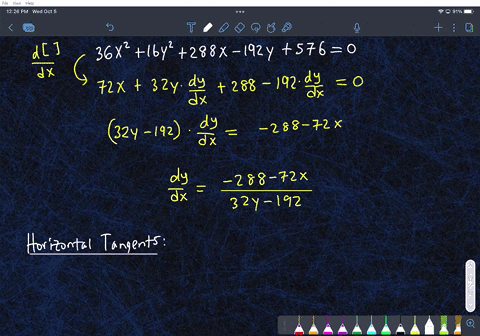 12:26 PM Wed Oct 5
d[ ]/dx
36x² + 16y² + 288x - 192y + 576 = 0
72x + 32y · dy/dx + 288 - 192 · dy/dx = 0
(32y - 192) · dy/dx = -288 - 72x
dy/dx = (-288 - 72x)/(32y - 192)
Horizontal Tangents: